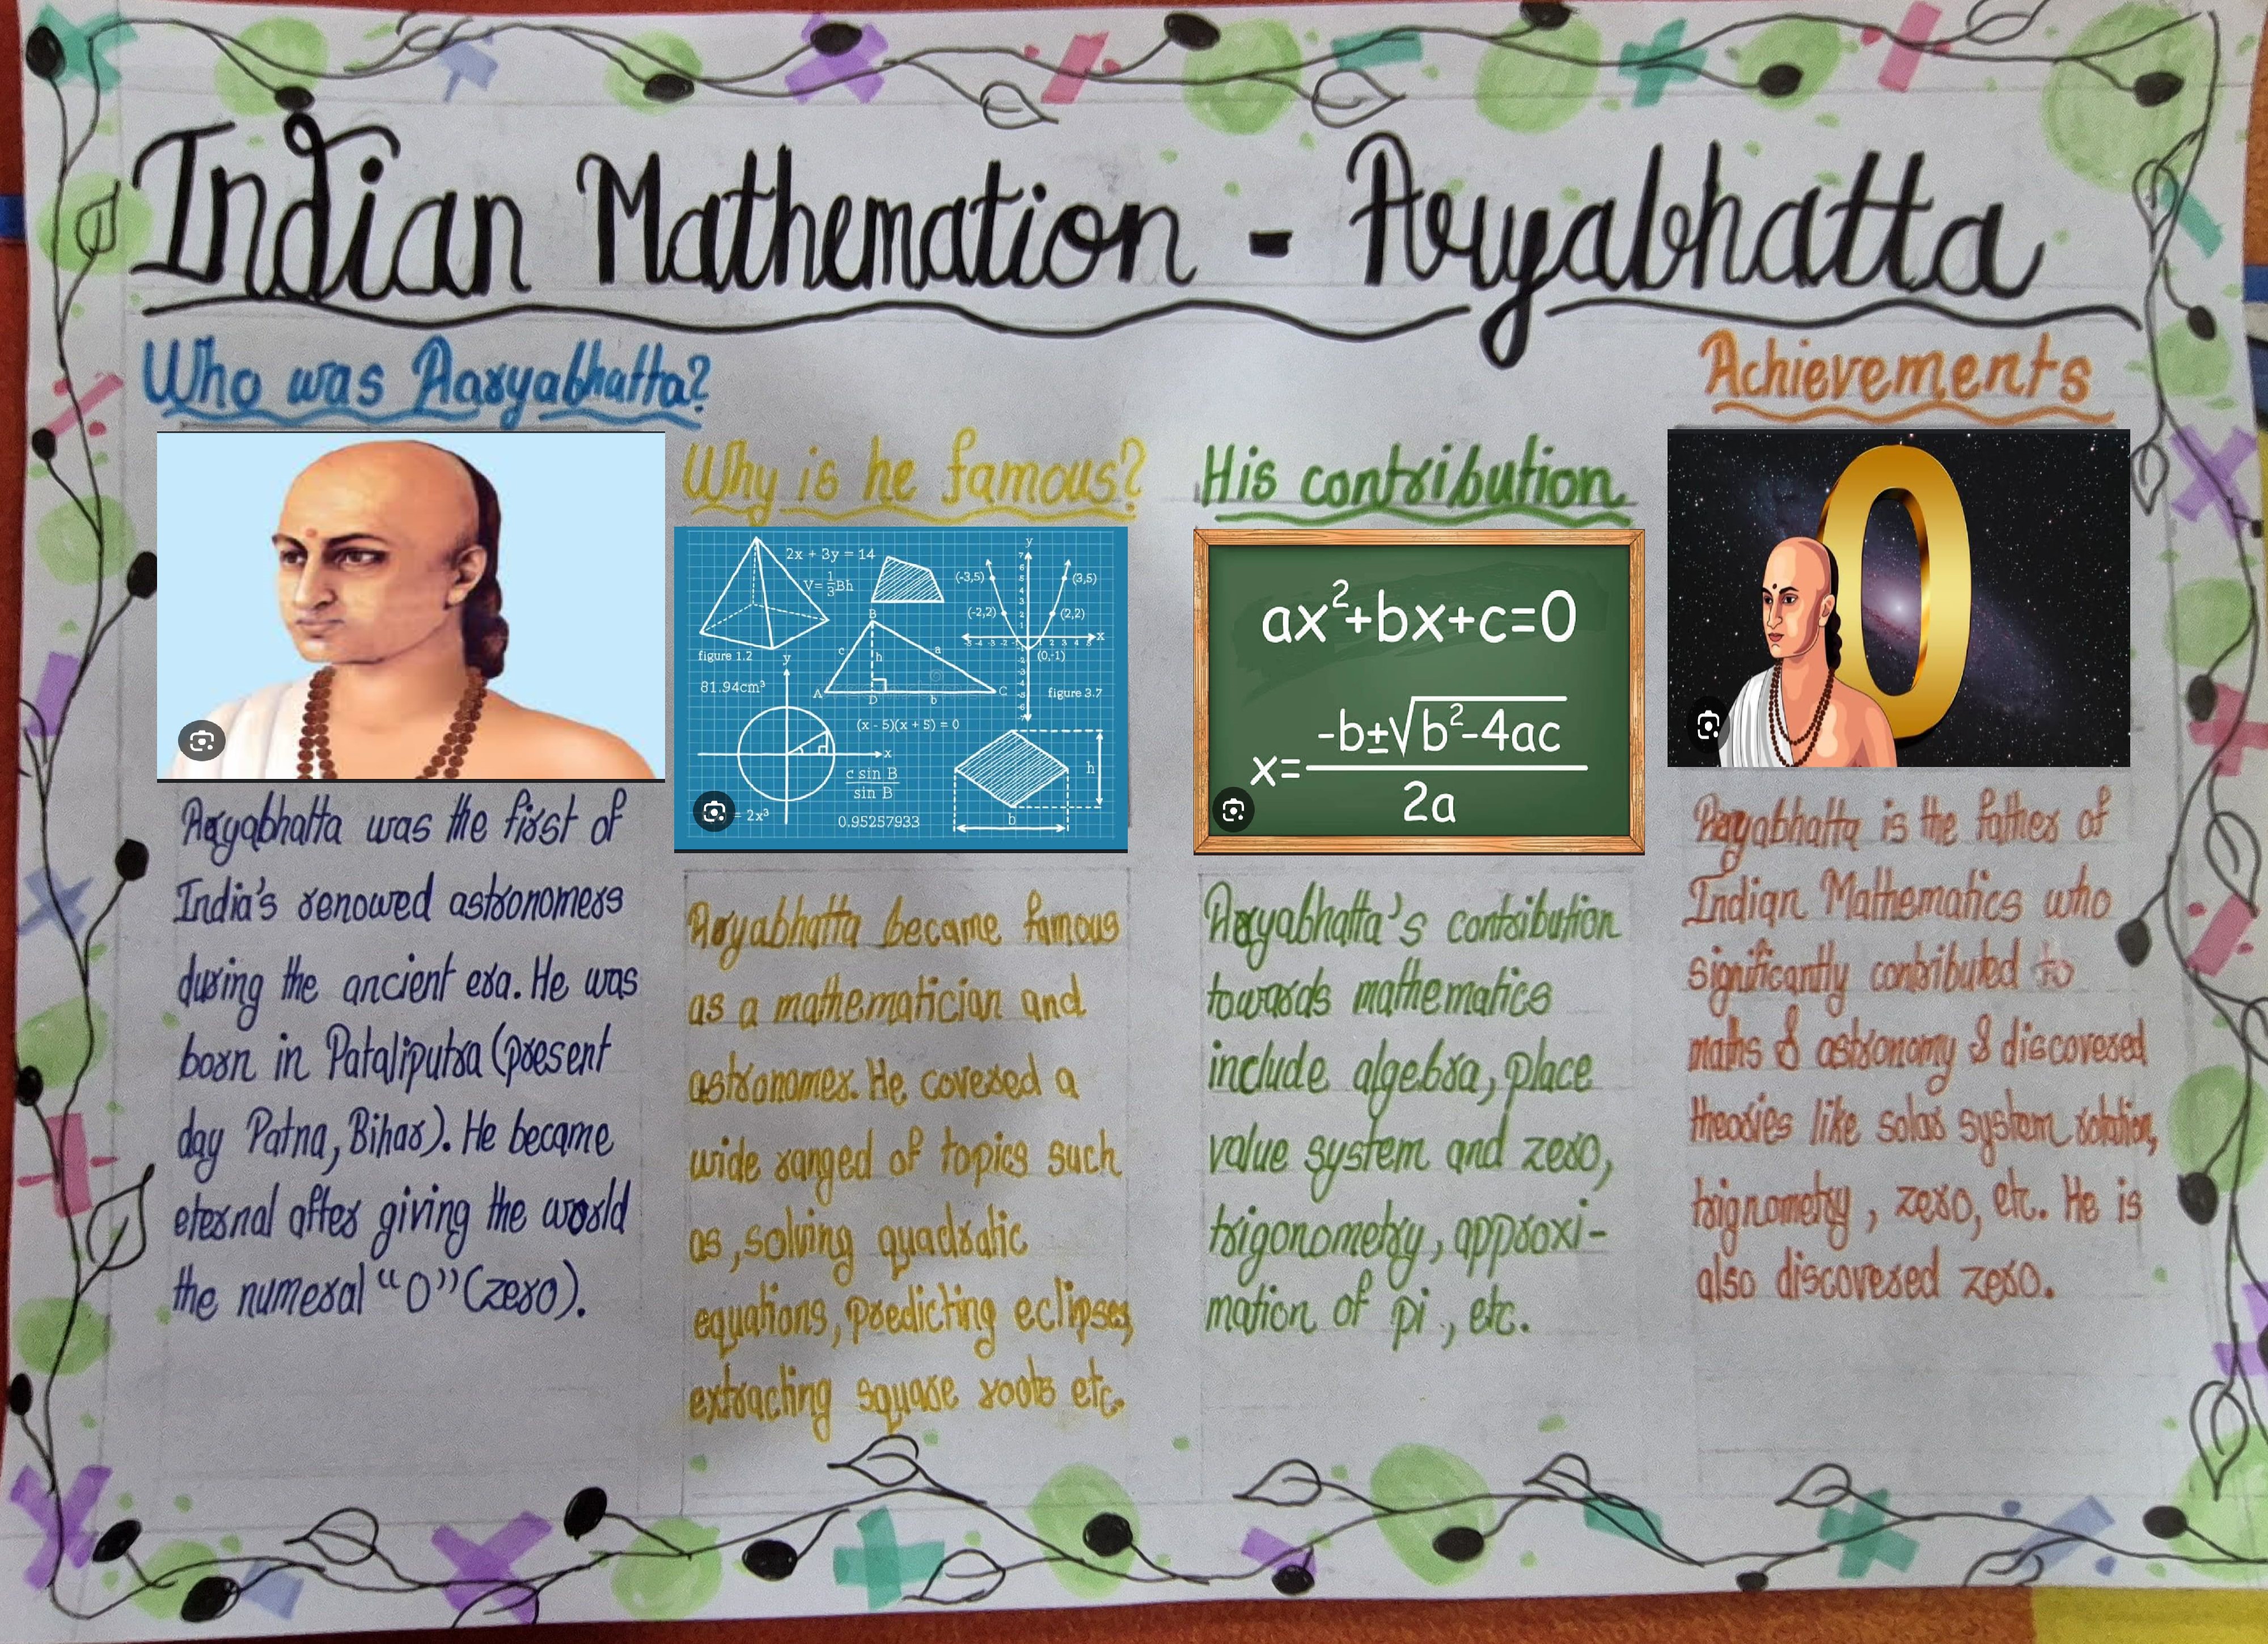 Indian Mathemation - Aryabhatta
Who was Aaryabhatta?
Aryabhatta was the first of
India's renowed astronomers
during the ancient era. He was
born in Pataliputra (present
day Patna, Bihar). He became
eternal after giving the world
the numeral "0" (zero).
Why is he famous?
2x + 3y = 14
V= 1/3 Bh
figure 1.2
81.94cm³
B
c
h
a
A
D
b
C
y
x
(-3,5)
(3,5)
(-2,2)
(2,2)
(0,-1)
figure 3.7
y
x
(x - 5)(x + 5) = 0
c sin B
sin B
= 2x³
0.95257933
h
b
Aryabhatta became famous
as a mathematician and
astronomer. He covered a
wide ranged of topics such
as, solving quadratic
equations, predicting eclipses,
extracting square roots etc.
His contribution
ax²+bx+c=0
x= -b±√b²-4ac
2a
Aryabhatta's contribution
towards mathematics
include algebra, place
value system and zero,
trigonometry, approxi-
mation of pi, etc.
Achievements
0
Aryabhatta is the father of
Indian Mathematics who
significantly contributed to
maths & astronomy & discovered
theories like solar system rotation,
trignometry, zero, etc. He is
also discovered zero.